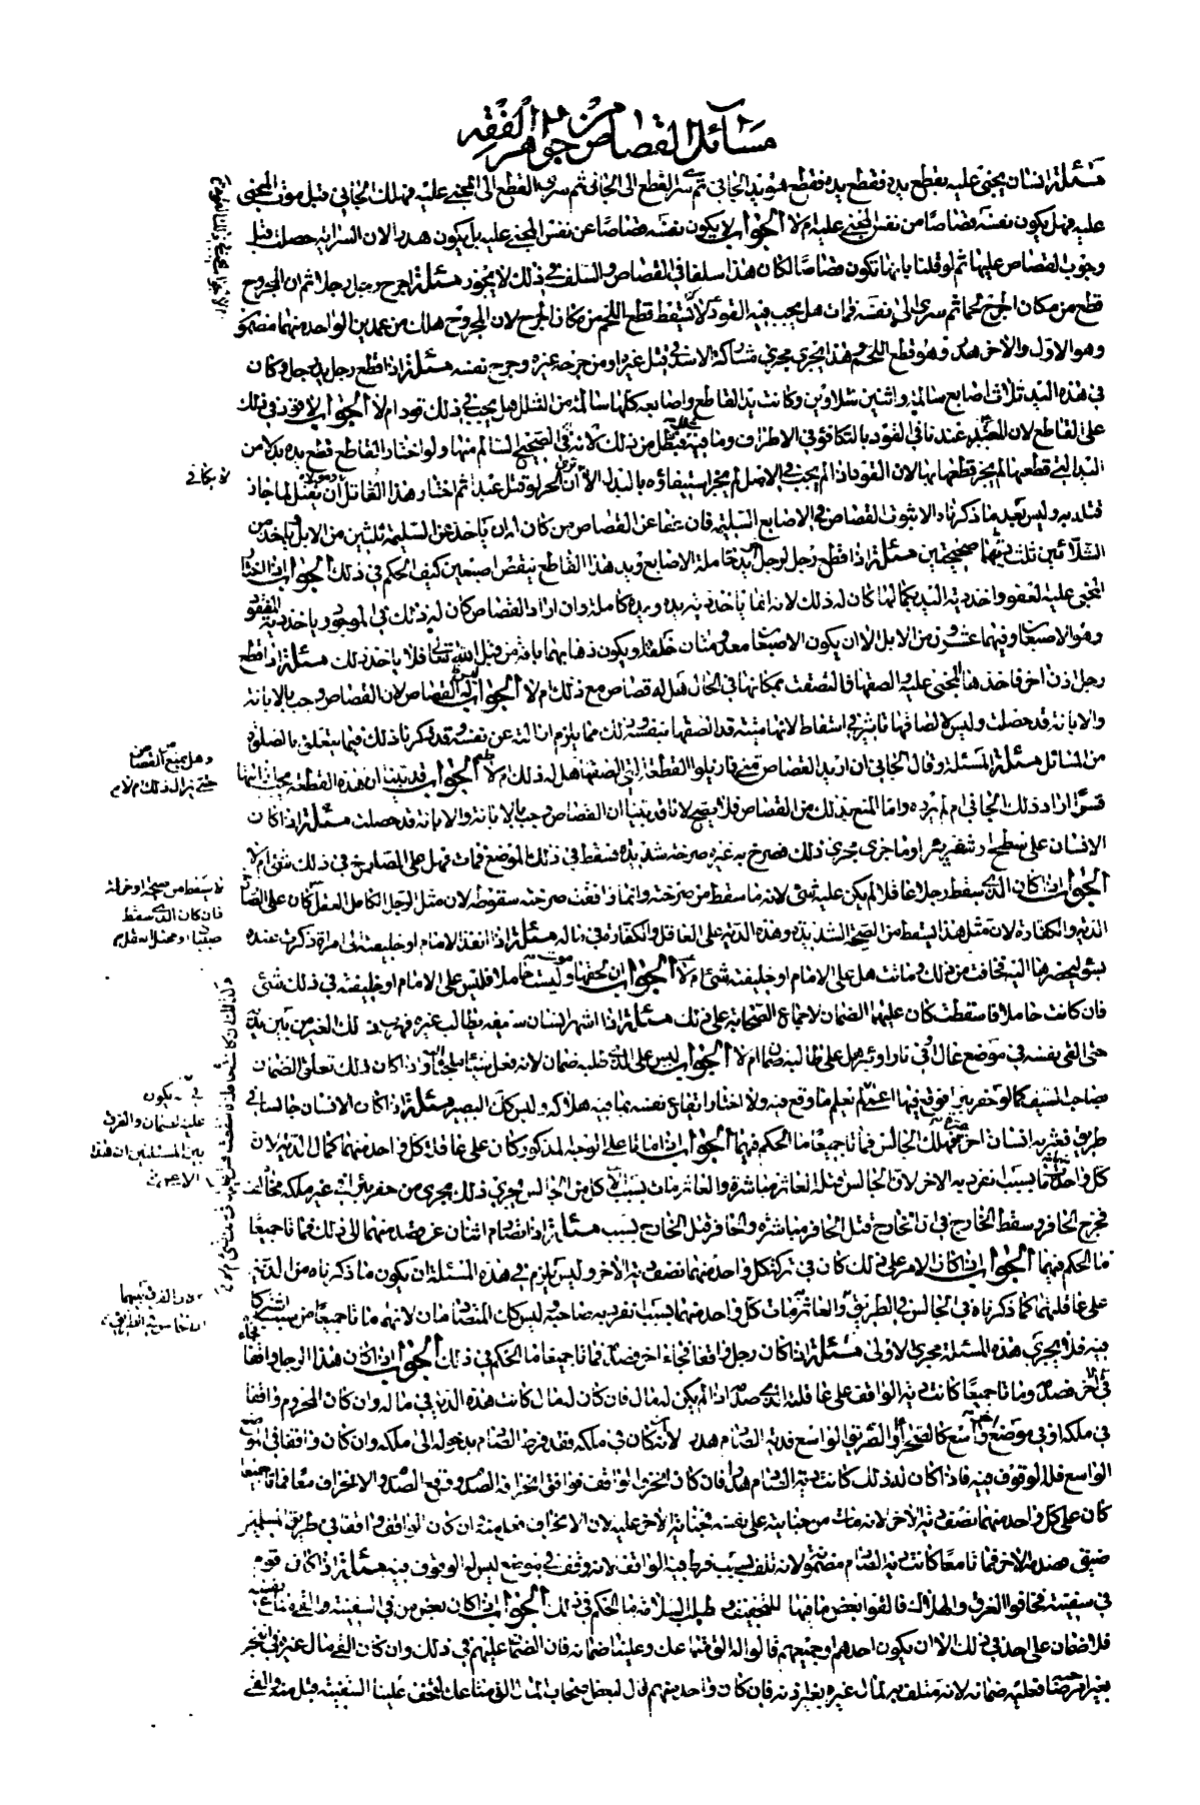 مسائل القصاص من جواهر الفقه
مسئلة انسان يجنى عليه بقطع يده فقطع يده فقطع هو يد الجانى ثم سرى القطع الى الجانى ثم سرى القطع الى المجنى عليه فهلك الجاني قبل موت المجنى
عليه فهل يكون نفسه قصاصا من نفس المجنى عليه ام لا الجواب لا يكون نفسه قصاصا عن نفس المجنى عليه بل يكون هدرا لان السراية حصلت قبل
وجوب القصاص عليها ثم لو قلنا بانها تكون قصاصا لكان هذا سلفا في القصاص والسلف في ذلك لا يجوز مسئلة اجرح رجل رجلا ثم ان المجروح
قطع من مكان الجرح لحما ثم سرى الى نفسه فمات هل يجب فيه القود لا يسقط قطع اللحم من مكان الجرح لان المجروح هلك من عمدين الواحد منهما مضمون
وهو الاول والاخر هدر وهو قطع اللحم وهذا يجرى مجرى مشاركة الاسد في قتل غيره او من جرحه غيره وجرح نفسه مسئلة اذا قطع رجل يد رجل وكان
في هذه اليد ثلاث اصابع سالمة واثنين شلاوين وكانت يد القاطع واصابعه كلها سالمة من الشلل هل يجب في ذلك قود ام لا الجواب لا قود في ذلك
على القاطع لان المعتبر عندنا في القود بالتكافؤ في الاطراف وما فيه شلل من ذلك لا في الصحيح السالم منها ولو اختار القاطع قطع يده بدلا من
اليد التي قطعها لم يجز قطعها بها لان القود اذا لم يجب في الاصل لم يجز استيفاؤه بالبدل الا ترى ان الحر لو قتل عبدا ثم اختار هذا القاتل ان يقتل لما جاز
قتله به وليس بعد ما ذكرناه الا ثبوت القصاص في الاصابع السليمة فان عفا عن القصاص من كان له ان ياخذ عن السليمة ثلثين من الابل وياخذ من
الشلائين ثلث ديتها صحيحتين مسئلة اذا قطع رجل لرجل يد كاملة الاصابع ويد هذا القاطع ينقص اصبعين كيف الحكم في ذلك الجواب اذا اختار
المجنى عليه العفو واخذ دية اليد بكمالها كان له ذلك لانه انما ياخذ دية يده ويده كاملة وان اراد القصاص كان له ذلك في الموجود وياخذ دية المفقود
وهو الاصبعان وفيهما عشرون من الابل الا ان يكون الاصبعان معدومتان خلقة او يكون ذهابهما بافة من قبل الله تعالى فلا ياخذ ذلك مسئلة اذا قطع
رجل اذن اخر فاخذها المجنى عليه والصقها فالتصقت بمكانها في الحال هل له قصاص مع ذلك ام لا الجواب له القصاص لان القصاص وجب بالابانة
والابانة قد حصلت وليس لالصاقها تاثير في اسقاط لانها ميتة قد الصقها بنفسه وذلك مما يلزم ازالته عن نفسه وقد ذكرنا ذلك فيما يتعلق بالصلوة
من المسائل مسئلة المسئلة وقال الجانى ان اريد القصاص منى فازيلوا القطعة التي الصقها هل له ذلك ام لا الجواب قد بينا ان هذه القطعة يجب ازالتها
قسرا اراد ذلك الجاني ام لم يرده واما المنع بذلك من القصاص فلا يصح لانا قد بينا ان القصاص وجب بالابانة والابانة قد حصلت مسئلة اذا كان
الانسان على سطح او شفير بئر او ما جرى مجرى ذلك فصرخ به غيره صرخة شديدة فسقط في ذلك الموضع فمات فهل على الصارخ في ذلك شئ ام لا
الجواب اذا كان الذى سقط رجلا عاقلا لم يكن عليه شئ لانه ما سقط من صرخته وانما وافقت صرخته سقوطه لان مثل الرجل الكامل العقل
الدية والكفارة لان مثل هذا يسقط من الصيحة الشديدة وهذه الدية على العاقلة والكفارة في ماله مسئلة اذا انفذ الامام او خليفته الى امراة ذكرت عنده
بسوء ليحضرها اليه فخافت من ذلك وماتت هل على الامام او خليفته شئ ام لا الجواب ان لحقها موت وليست حاملا فليس على الامام او خليفته في ذلك شئ
فان كانت حاملا فاسقطت كان عليهما الضمان لاجماع الصحابة على ذلك مسئلة اذا اشهر انسان سيفه يطالب غيره فهرب ذلك الغير من بين يديه
حتى القى نفسه في موضع عال او في نار او بئر هل على طالبه ضمان ام لا الجواب ليس على الذى طلبه ضمان لانه فعل
صاحب السيف كما لو حفر بئرا فوقع فيها اعمى لم يعلم ما وقع فيه ولا اختار ايقاع نفسه بما فيه هلاكه وليس كك البصير مسئلة اذا كان الانسان جالسا في
طريق فعثر به انسان اخر عثرة فهلك الجالس فماتا جميعا ما الحكم فيهما الجواب اذا ماتا على الوجه المذكور كان على عاقلة كل واحد منهما كمال الدية لان
كل واحد مات بسبب تفرد به الاخر لان الجالس قتله العاثر مباشرة والعاثر مات بسبب كان من الجالس ويجرى ذلك مجرى من حفر بئرا في غير ملكه
فجرح الحافر وسقط الجارح في بئر قتل الحافر مباشرة والحافر قتل الجارح بسبب مسئلة اذا اصطدم اثنان عن قصد منهما الى ذلك فماتا جميعا
ما الحكم فيهما الجواب اذا كان الامر على ذلك كان في تركة كل واحد منهما نصف دية الاخر وليس يلزم في هذه المسئلة ان يكون ما ذكرناه من الدية
على عاقلتهما كما ذكرناه في الجالس في الطريق والعاثر مات كل واحد منهما بسبب تفرد به صاحبه وليس كك المتصادمان لانهما ماتا جميعا من سبب اشتركا
فيه فلا يجرى هذه المسئلة مجرى الاولى مسئلة اذا كان رجل واقفا فجاء اخر فصدمه فماتا جميعا ما الحكم في ذلك الجواب اذا كان هذا الرجل واقفا فجاء
اخر فصدمه وماتا جميعا كانت دية الواقف على عاقلة الذى صدمه اذا لم يكن له مال فان كان له مال كانت هذه الدية في ماله وان كان المصدوم واقفا
في ملكه او في موضع واسع كالصحراء او الطريق الواسع فدية الصادم هدر لانه كان في ملكه فقد فرط الصادم بدخوله الى ملكه وان كان واقفا في الموضع
الواسع فله الوقوف فيه فاذا كان له ذلك كانت دية الصادم هدرا فان كان انحرف الواقف فوافق انحرافه الصدم وقع الصدم والانحراف معا فماتا جميعا
كان على كل واحد منهما نصف دية الاخر لانه مات من جنايته على نفسه وجناية الاخر عليه لان الانحراف فعل منه ان كان الواقف واقفا في طريق للمسلمين
ضيق فصدمه الاخر فماتا معا كانت دية الصادم مضمونة لانه تلف بسبب فرط فيه الواقف لانه وقف في موضع ليس له الوقوف فيه مسئلة اذا كان قوم
في سفينة فخافوا الغرق والهلاك فالقوا بعض ما فيها للتخفيف وطلبا للسلامة ما الحكم في ذلك الجواب اذا كان بعض من في السفينة والقى متاع نفسه
فلا ضمان على احد في ذلك الا ان يكون احدهم او جميعهم قالوا له الق متاعك وعلينا ضمانه فان الضمان عليهم في ذلك وان كان القى مال غيره في البحر
بغير امر صاحبه فعليه ضمانه لانه متلف لمال غيره بغير اذنه فان كان واحد منهم قال لبعض اصحاب المتاع الق متاعك لتخف علينا السفينة فقبل منه والقى
لا يكافي
وهل يمنع القصاص من
حتى يزال ذلك ام لا
لا يسقط من صيحة او خرافة
فان كان الذى سقط
صبيا او مختل العقل
يكون
عليه الضمان والفرق
بين المسئلتين ان هذا